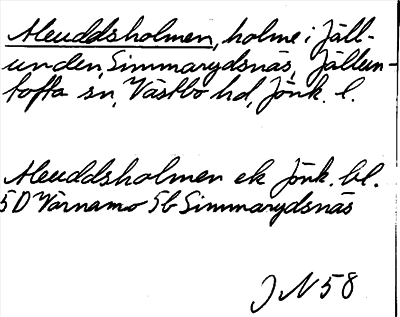 Meuddsholmen, holme i Jäll-
unden, Simmarydsnäs, Jällun-
tofta sn, Västbo hd, Jönk. l.
Meuddsholmen ek Jönk. bl.
5D Värnamo 5b Simmarydsnäs
J N 58